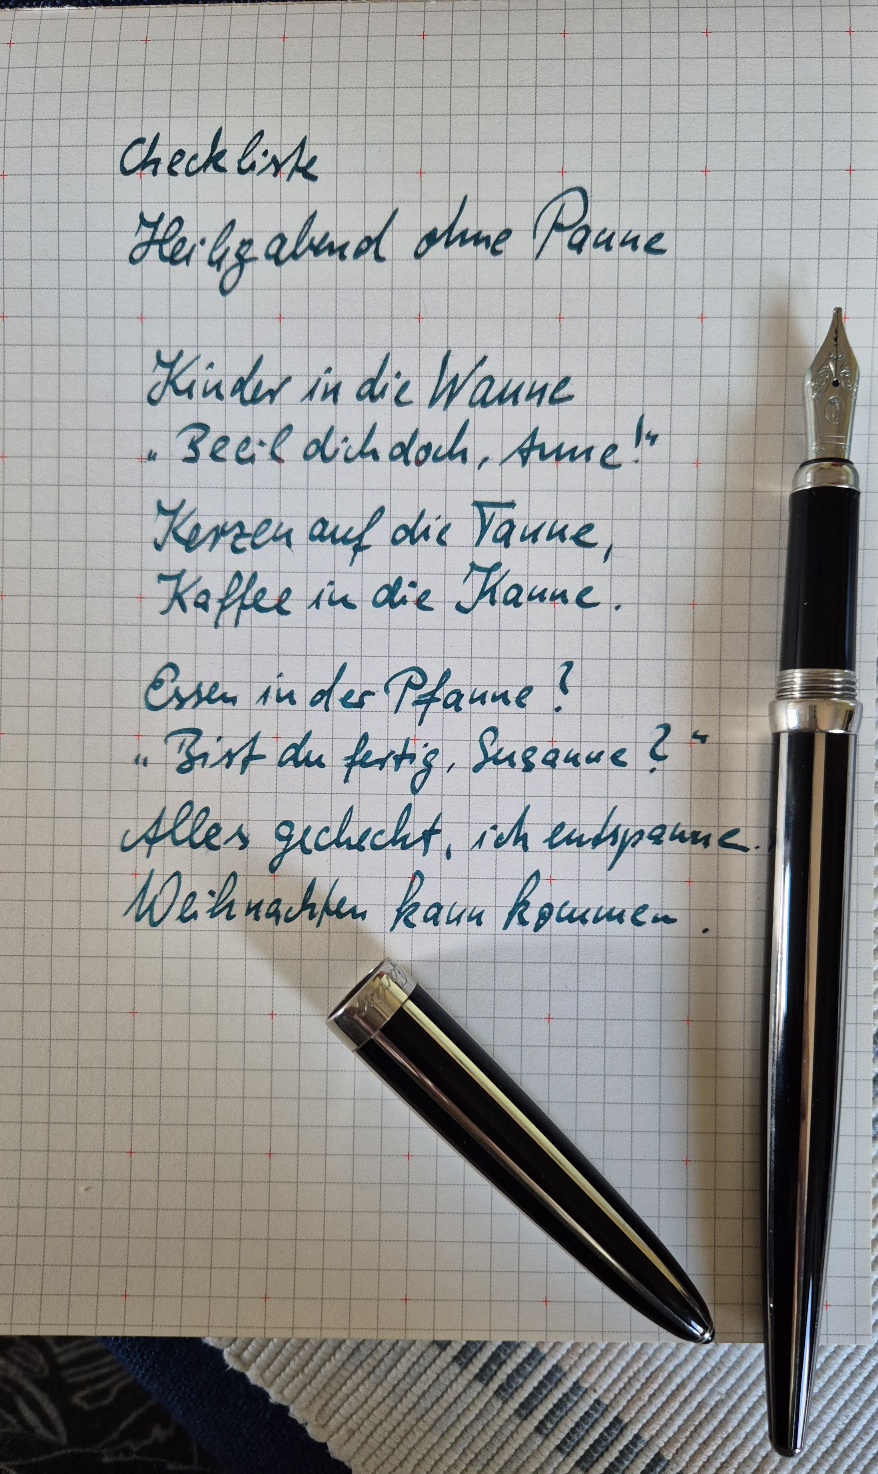 Checkliste
Heiligabend ohne Panne
Kinder in die Wanne
„Beeil dich doch, Anne!“
Kerzen auf die Tanne,
Kaffee in die Kanne.
Essen in der Pfanne?
„Bist du fertig, Susanne?“
Alles gecheckt, ich entspanne.
Weihnachten kann kommen.